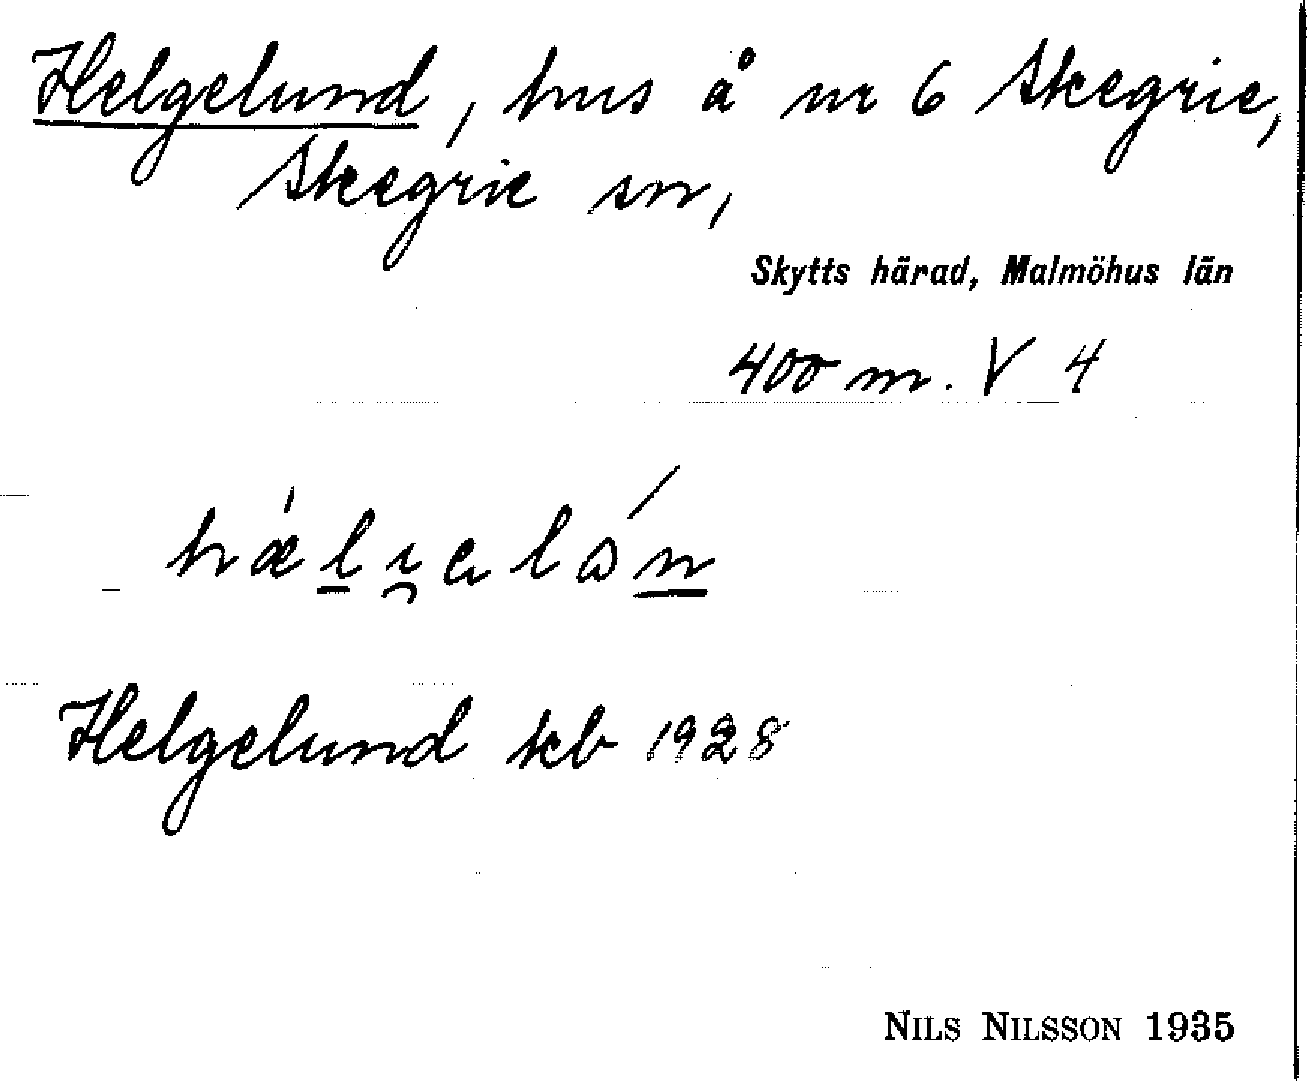 Helgelund, hus å nr 6 Skegrie,
Skegrie sn,
Skytts härad, Malmöhus län
400 m. V 4
Helgelund kb 1928
NILS NILSSON 1935